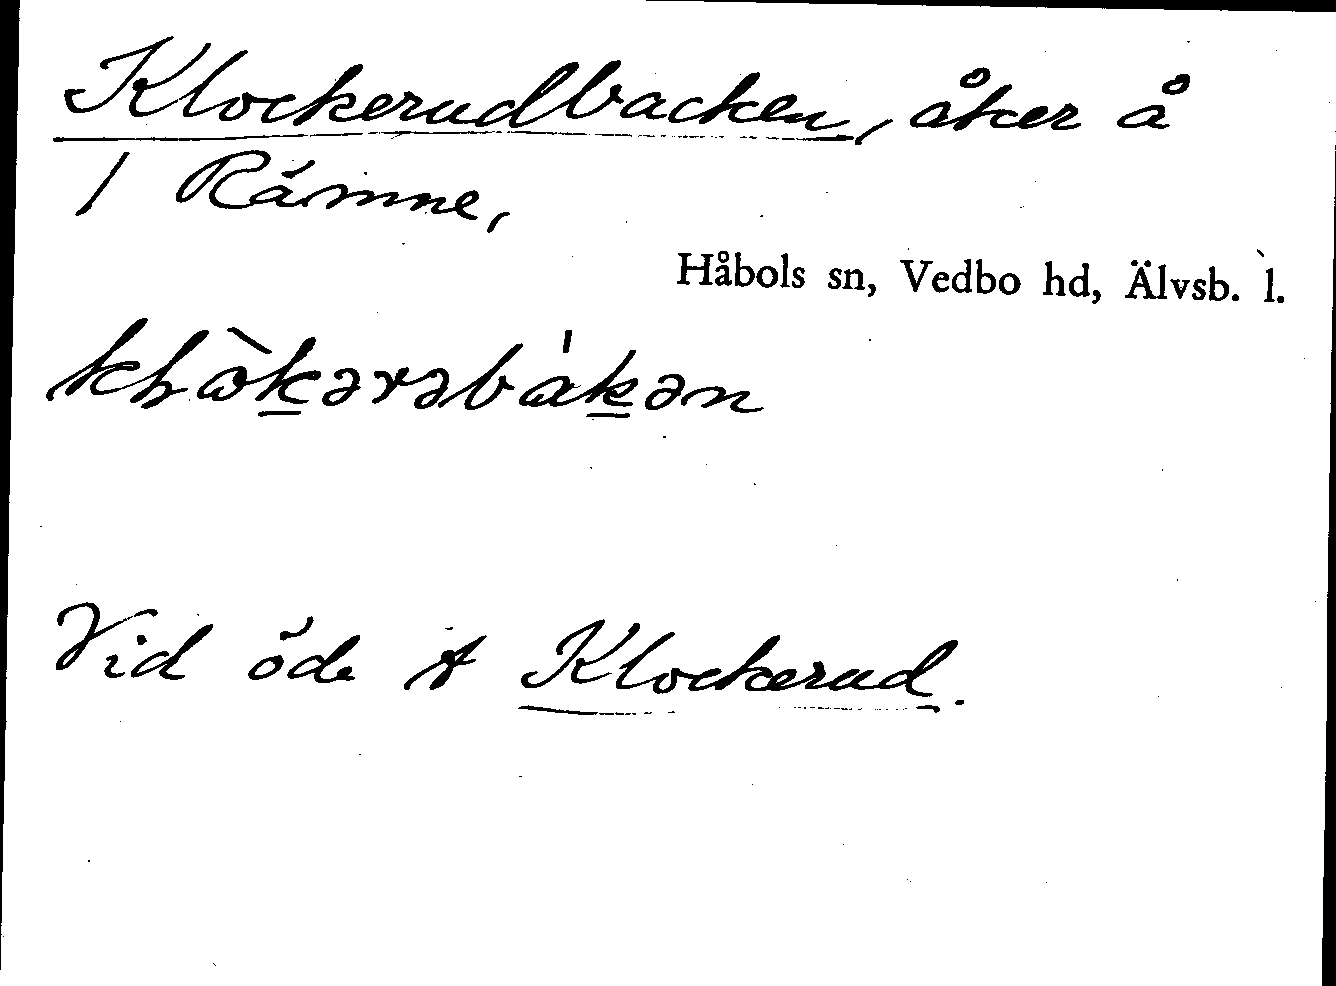 Klockerudbacken, åker å
1 Rämne,
Håbols sn, Vedbo hd, Älvsb. l.
Vid öde t Klockerud.